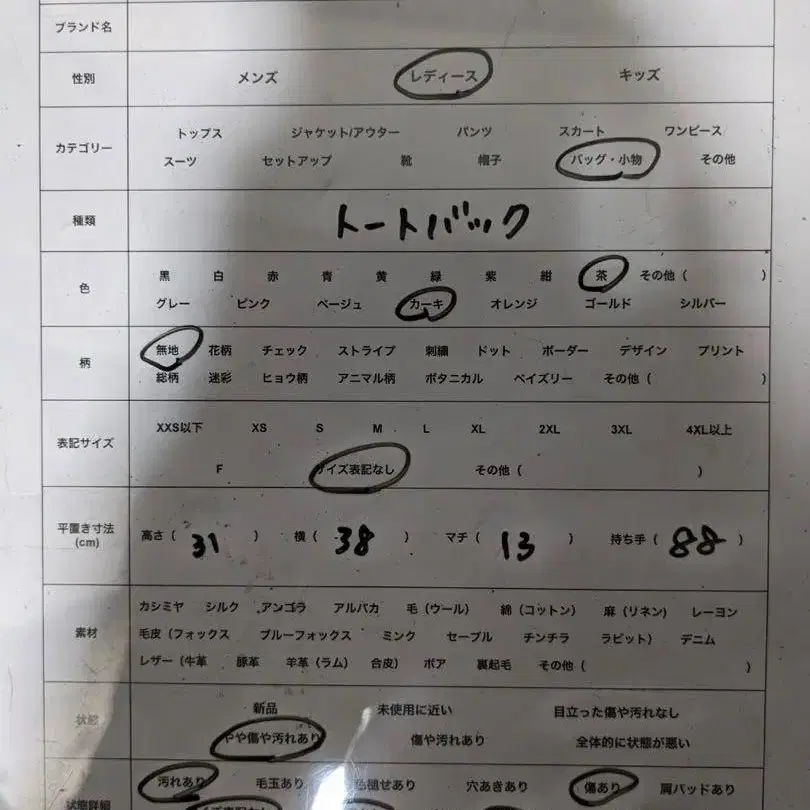 ブランド名
性別 メンズ レディース キッズ
カテゴリー トップス ジャケット/アウター パンツ スカート ワンピース
スーツ セットアップ 靴 帽子 バッグ・小物 その他
種類 トートバック
色 黒 白 赤 青 黄 緑 紫 紺 茶 その他( )
グレー ピンク ベージュ カーキ オレンジ ゴールド シルバー
柄 無地 花柄 チェック ストライプ 刺繍 ドット ボーダー デザイン プリント
総柄 迷彩 ヒョウ柄 アニマル柄 ボタニカル ペイズリー その他( )
表記サイズ XXS以下 XS S M L XL 2XL 3XL 4XL以上
F サイズ表記なし その他( )
平置き寸法
(cm) 高さ( 31 ) 横( 38 ) マチ( 13 ) 持ち手( 88 )
素材 カシミヤ シルク アンゴラ アルパカ 毛(ウール) 綿(コットン) 麻(リネン) レーヨン
毛皮(フォックス ブルーフォックス ミンク セーブル チンチラ ラビット) デニム
レザー(牛革 豚革 羊革(ラム) 合皮) ボア 裏起毛 その他( )
状態 新品 未使用に近い 目立った傷や汚れなし
やや傷や汚れあり 傷や汚れあり 全体的に状態が悪い
状態詳細 汚れあり 毛玉あり 色褪せあり 穴あきあり 傷あり 肩パッドあり